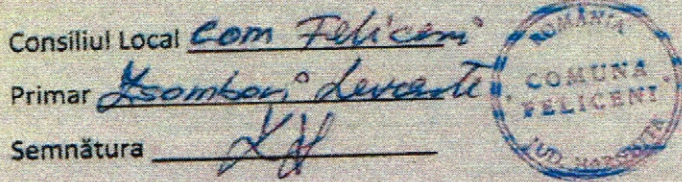 Consiliul Local Com Feliceni
Primar Zsombori Levente
Semnătura
ROMÂNIA
COMUNA
FELICENI
JUD. HARGHITA